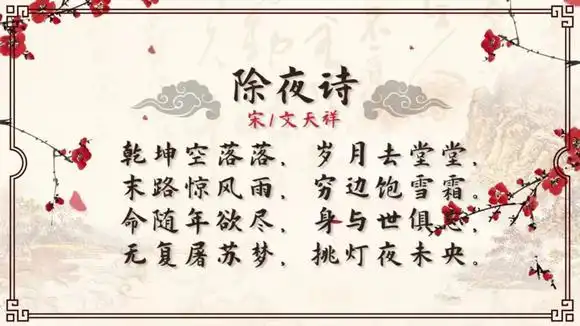 除夜诗
宋/文天祥
乾坤空落落，岁月去堂堂，
末路惊风雨，穷边饱雪霜。
命随年欲尽，身与世俱忘，
无复屠苏梦，挑灯夜未央。